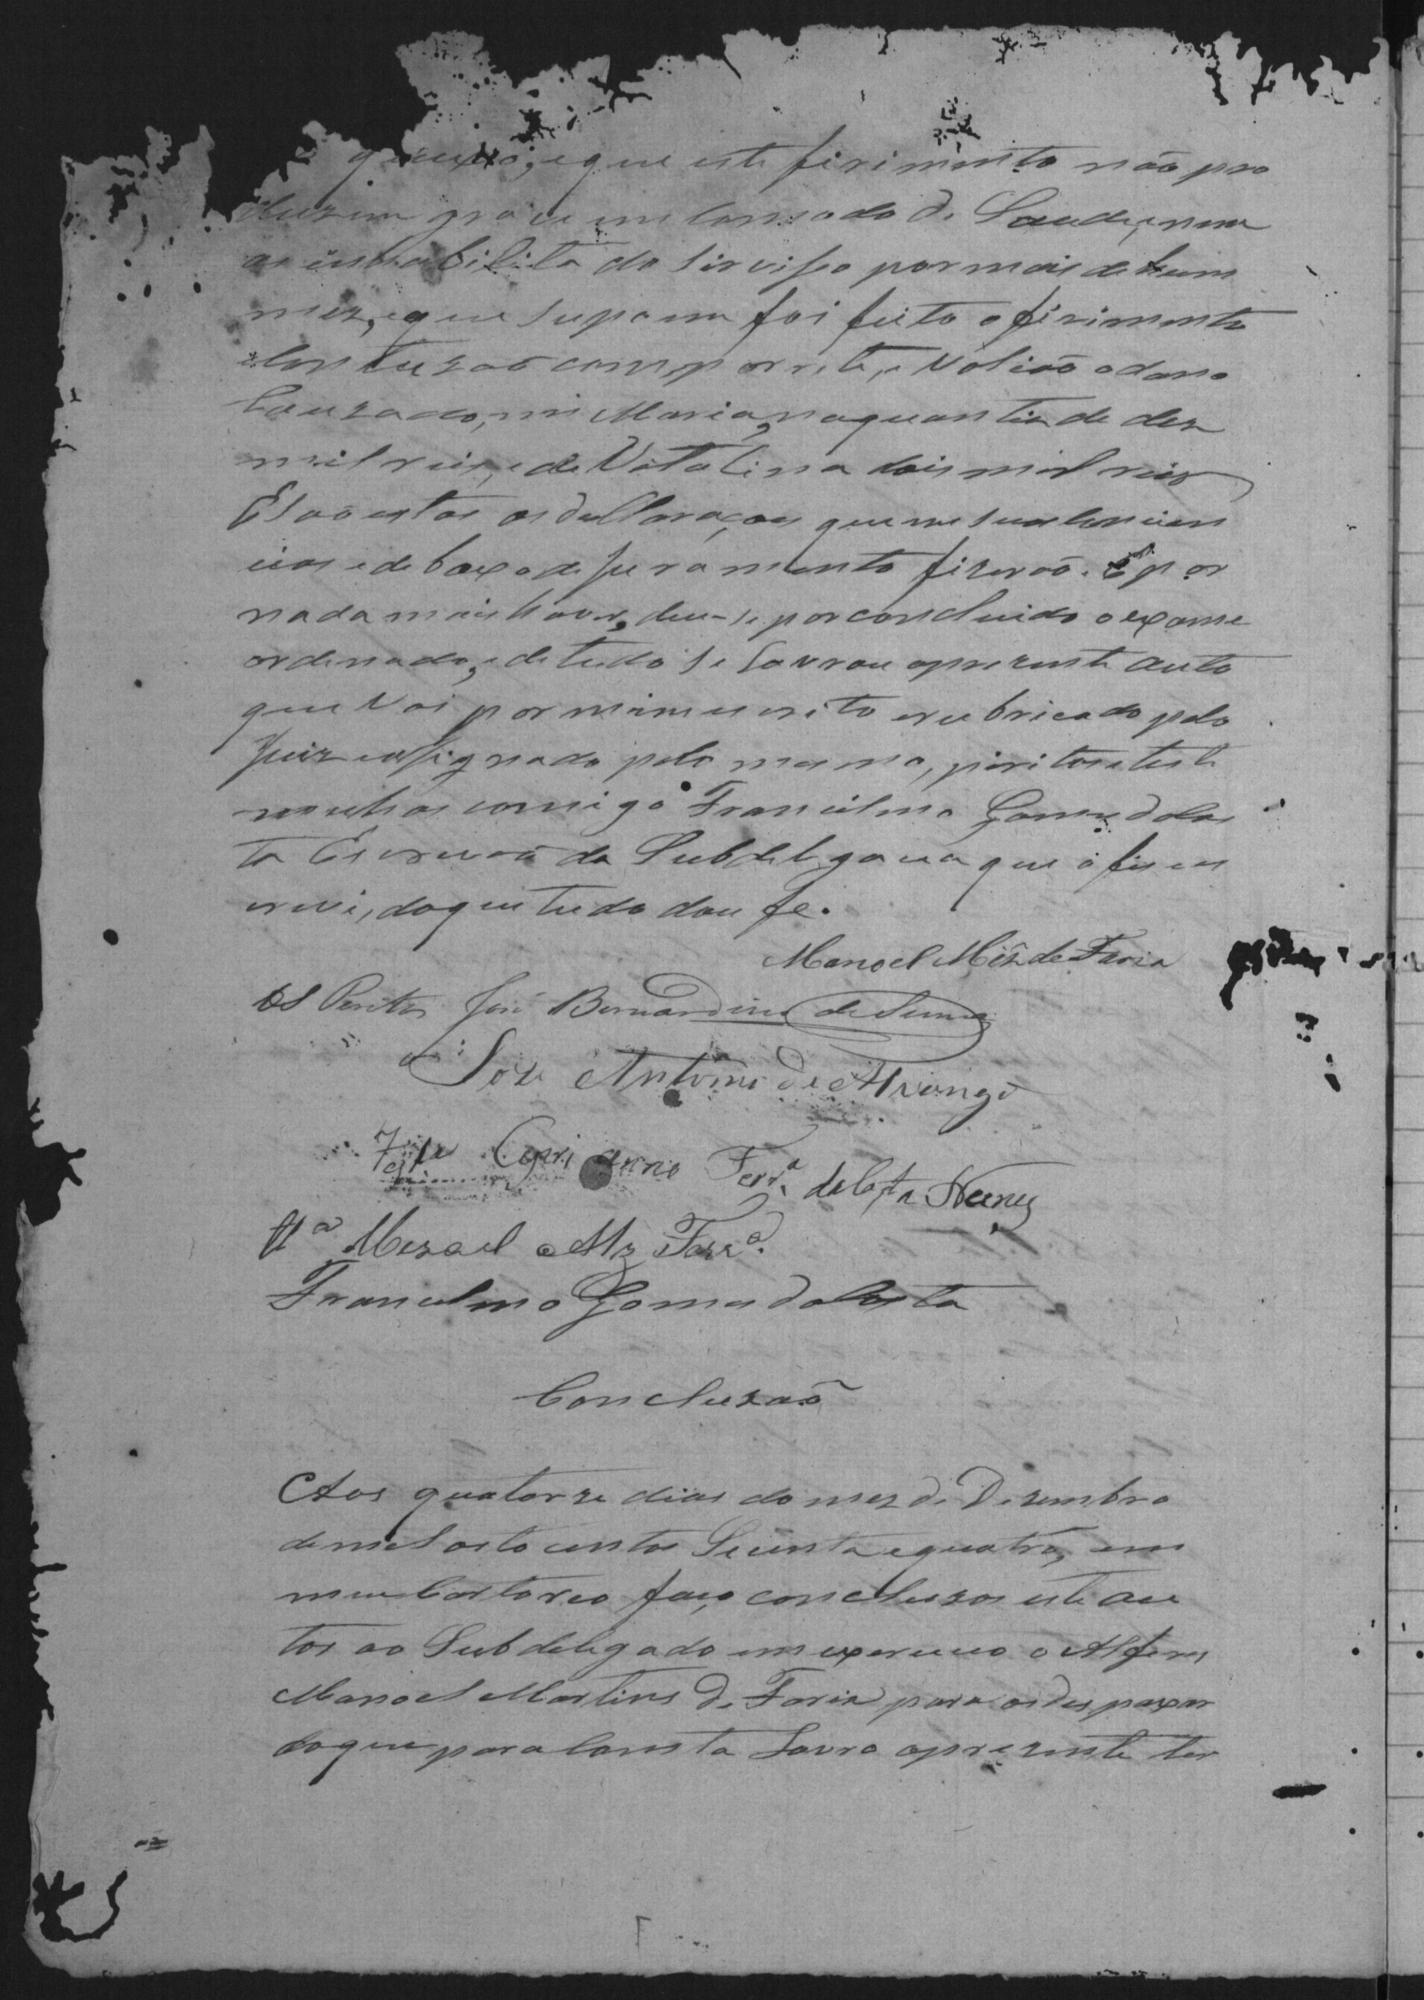 que este firimento não pro
duzem grave encomodo de Saude, nem
as inhabilita do Sirvisso por mais de hum
mez, e que supoem foi feito o firimento
e Contuzaõ com porrete, e Valiaõ o dano
Cauzado, em Maria, na quantia de dez
mil reis, e de Vitalina dois mil reis
E saõ estas as decllaraçoes que em sua concien
cia e debaxo de juramento fizeraõ. E por
nada mais haver, deu-se por concluido o exame
ordenado, e de tudo se Lavrou o prezente auto
que Vai por mim escrito e rubricado pelo
Juiz e assignado pelo mesmo, piritos e teste
munhas comigo Francilino Gomes da Cos
ta Escrivaõ da Subdelegacia que o fis e es
crevi, do que tudo dou fe.
Manoel Miz de Faria
Os Peritos José Bernardino de Senna
Joze Antonio de Araujo
Cyprianno Ferrª da Costa Nunes
Mizael Alz Ferrª
Francilino Gomes da Costa
Concluzaõ
Aos quatorze dias do mez de Dezembro
de mil oito centos Secenta e quatro, em
meu Cartorio faço concluzos este au
tos ao Subdelegado em exercicio o Alferes
Manoel Martins de Faria para os despaxar
do que para Consta Lavro o prezente ter